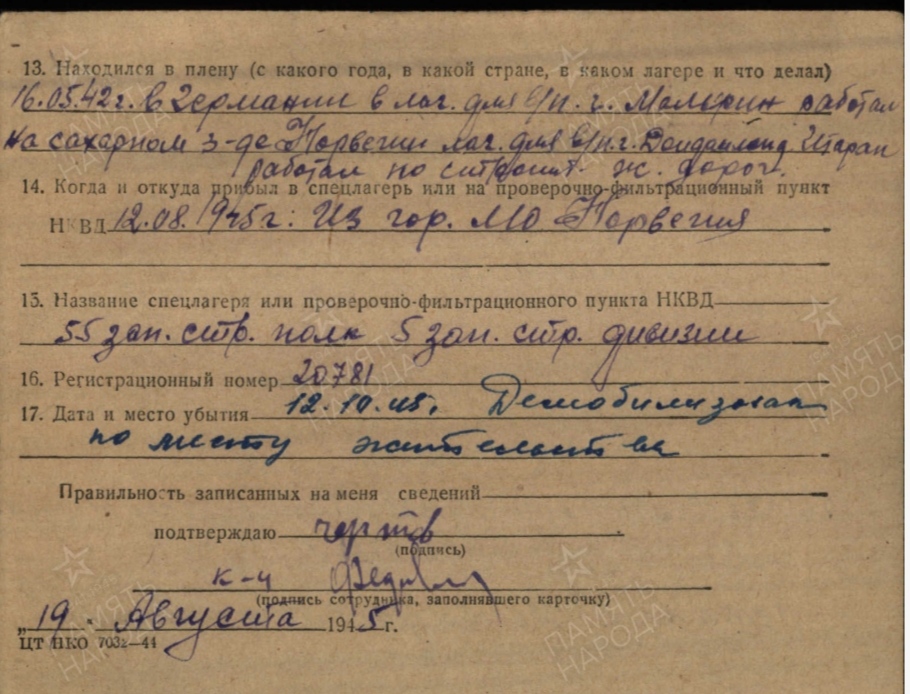 13. Находился в плену (с какого года, в какой стране, в каком лагере и что делал)
16.05.42 г. в Германии в лаг. для в/п. г. работал
на сахарном з-де Норвегии лаг. для в/п. г.
работал по строит. ж. дорог.
14. Когда и откуда прибыл в спецлагерь или на проверочно-фильтрационный пункт
НКВД 12.08.1945 г. Из гор. МО Норвегия
15. Название спецлагеря или проверочно-фильтрационного пункта НКВД
55 зап. стр. полк 5 зап. стр. дивизии
16. Регистрационный номер 20781
17. Дата и место убытия 12.10.45. Демобилизован
по месту жительства
Правильность записанных на меня сведений
подтверждаю
(подпись)
к-н
(подпись сотрудника, заполнявшего карточку)
„19. Августа 1945 г.
ЦТ НКО 7032—44
ПАМЯТЬ НАРОДА